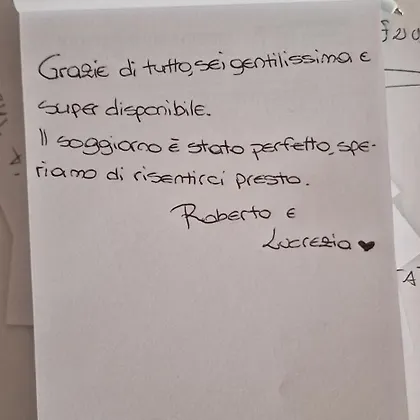 Grazie di tutto, sei gentilissima e
super disponibile.
Il soggiorno è stato perfetto, spe-
riamo di risentirci presto.
Roberto e
Lucrezia ♥